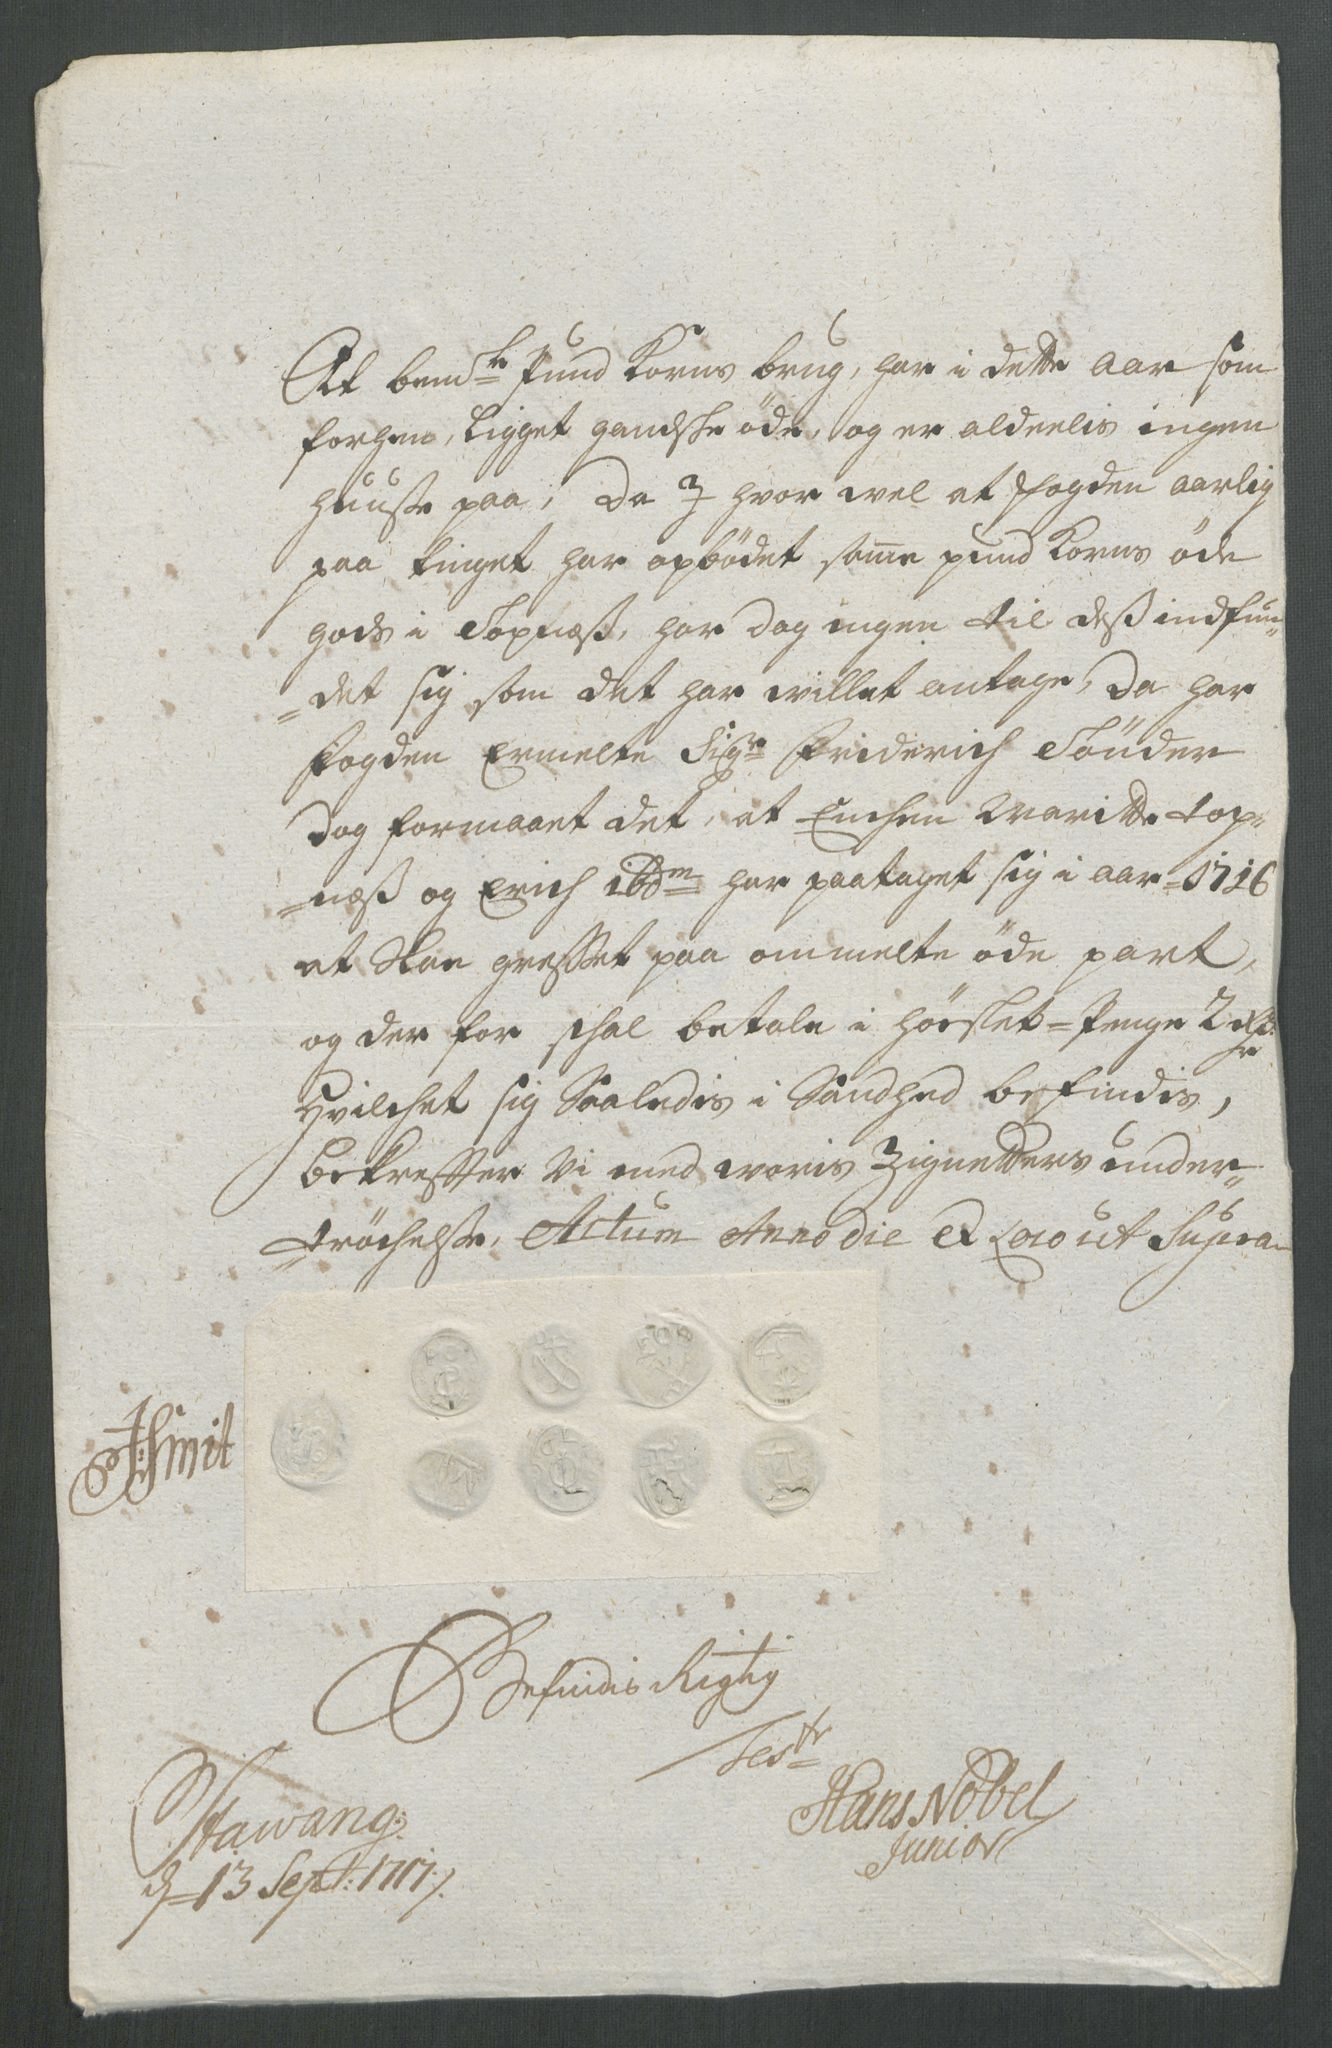 At bemte Pund Korns brug, har i dette aar som
forhen, ligget gandske öde, og er aldeelis ingen
huuse paa, Da I hvor wel at Fogden aarlig
paa tinget har opbödet samme pund Korns öde
gods i Topnæss, har dog ingen til dess indfun-
=det sig som det har willet antage, Da har
Fogden Ermelte Sigr Friderich Tönder
dog formaaet det, at Enchen Maritte top-
=næss og Erich ibdm har paataget sig i aar 1716
at Slaa gresset paa ommelte öde part,
og der for schal betale i höeslet=Penge 2
Hvilchet sig Saaledis i Sandhed befindis,
bekreffter Vi med woris Zignetters under-
tröchelse, Actum Anno die et Loco ut Supra
JSmit
Befindis Rigtig
Test
Hans Nobel
Junior
Stawang:
d= 13 Sept: 1717.